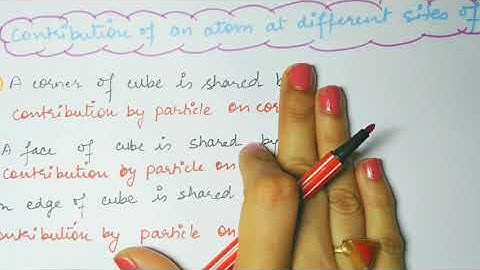 Contribution of an atom at different sites of
A corner of cube is shared b
contribution by particle on cor
A face of cube is shared by
contribution by particle on
n edge of cube is shared
ontribution by particle on